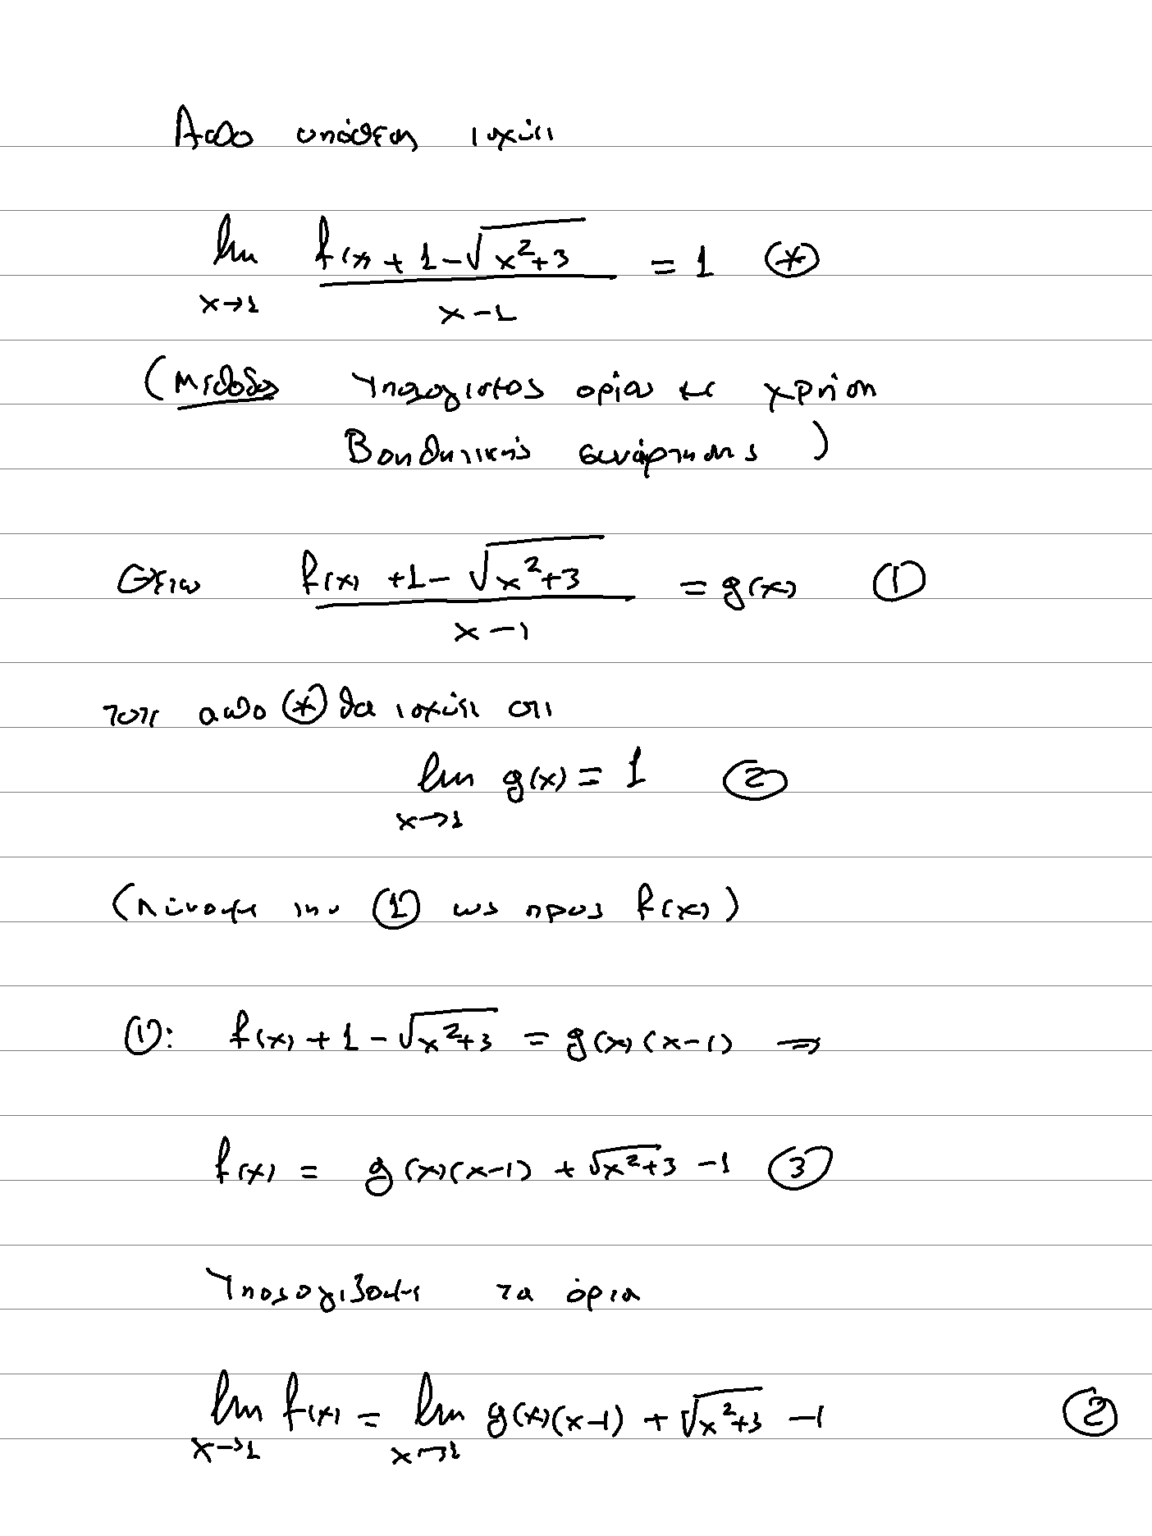 Από υπόθεση ισχύει
lim f(x) + 1 - √x²+3 = 1 (*)
x→1 x-1
(Μέθοδος Υπολογισμός ορίου με χρήση
Βοηθητικής συνάρτησης )
Θέτω f(x) + 1 - √x²+3 = g(x) (1)
x-1
τότε από (*) θα ισχύει ότι
lim g(x) = 1 (2)
x→1
(Λύνουμε την (1) ως προς f(x))
(1): f(x) + 1 - √x²+3 = g(x)(x-1) ⇒
f(x) = g(x)(x-1) + √x²+3 -1 (3)
Υπολογίζουμε τα όρια
lim f(x) = lim g(x)(x-1) + √x²+3 -1 (2)
x→1 x→1